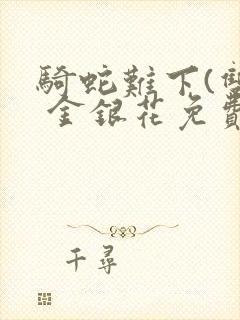 騎蛇難下(雙
金銀花免費
千尋